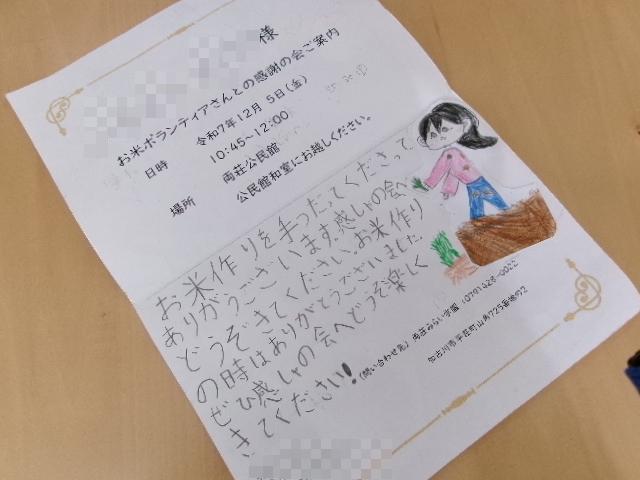 様
お米ボランティアさんとの感謝の会ご案内
日時 令和7年12月5日(金)
10:45~12:00
場所 両荘公民館
公民館和室にお越しください。
お米作りを手つだってくださって
ありがうございます。感しゃの会へ
どうぞきてください。お米作り
の時はありがとうございました
ぜひ感しゃの会へどうぞ楽しく
きてください!
(問い合わせ先) 両荘みらい学園
加古川市平荘町山角725番地の2